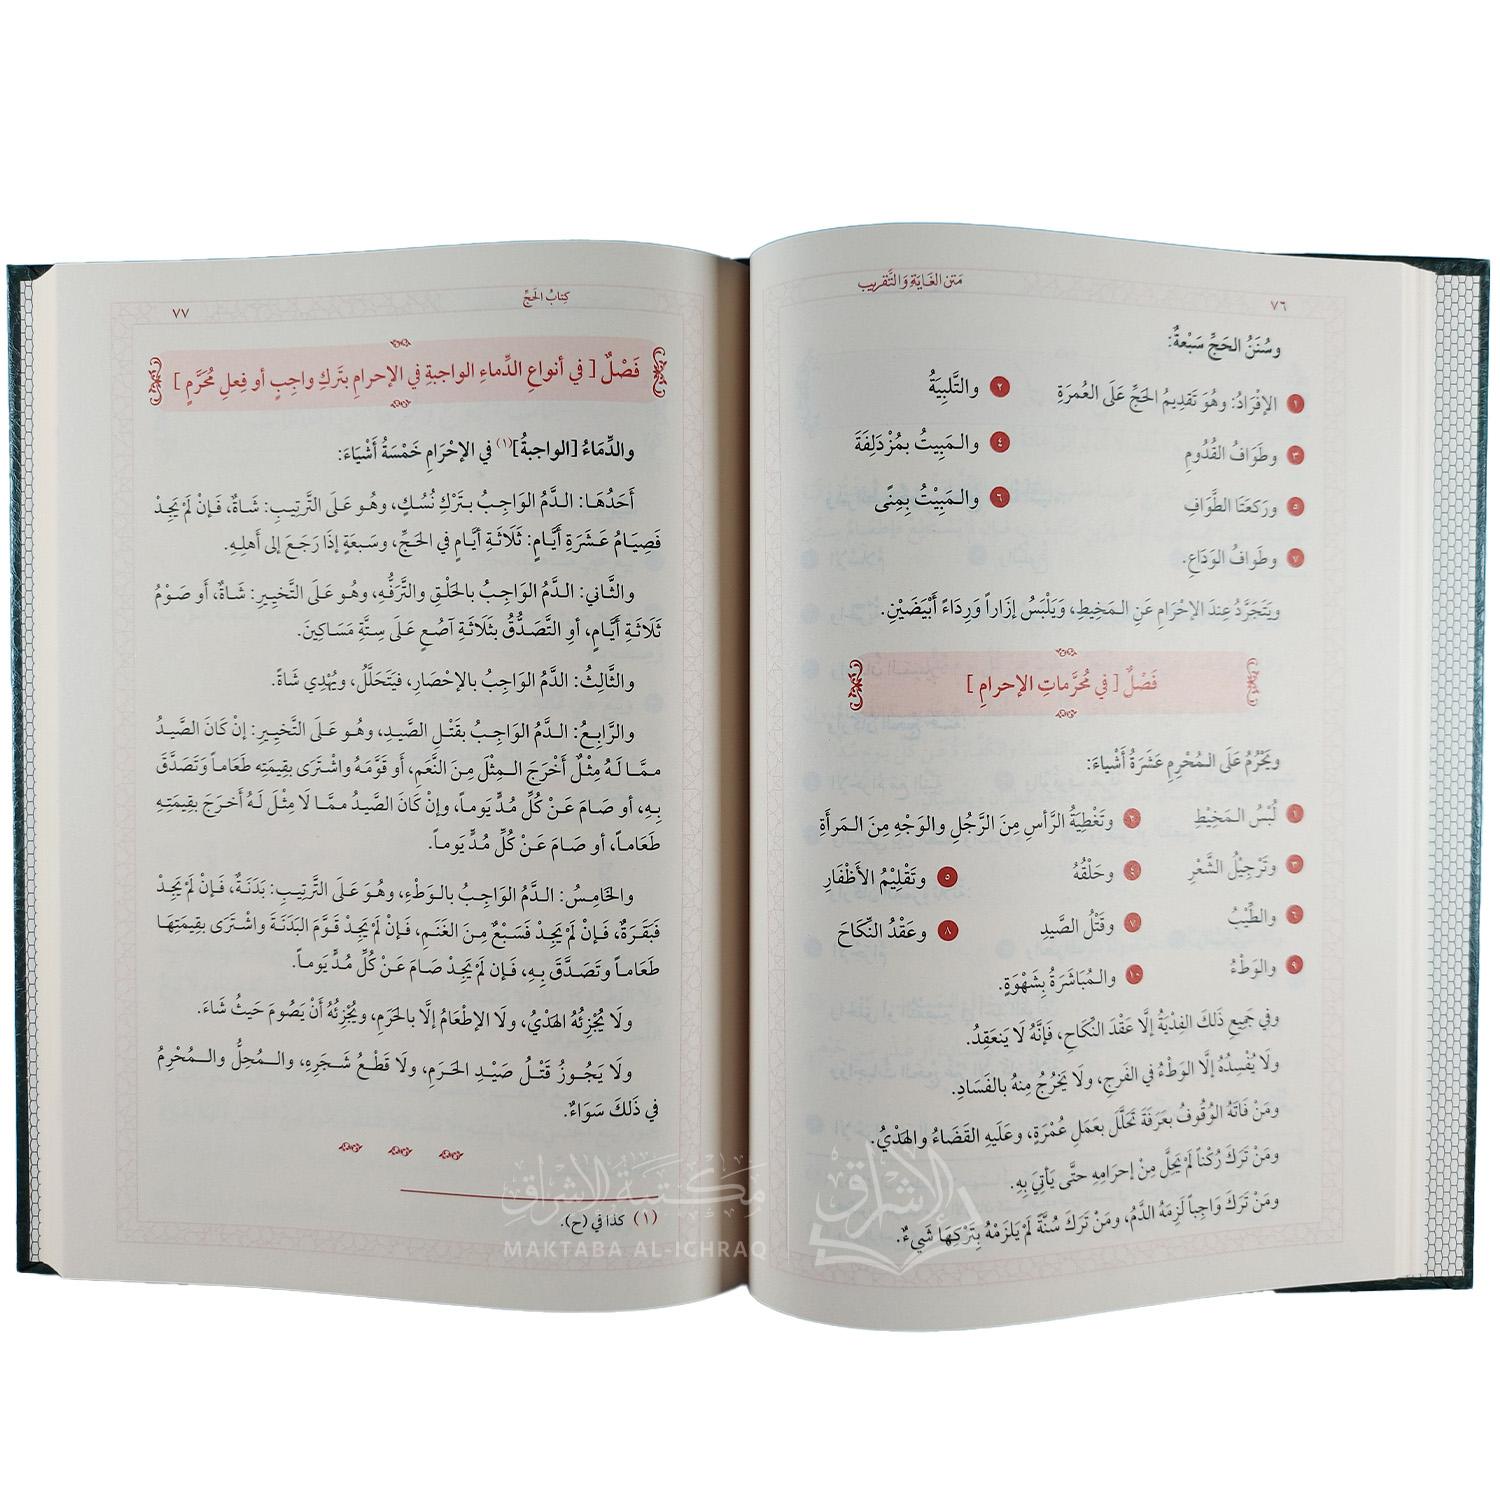 ٧٦
مَتن الغَايَةِ وَالتَّقريب
وسُنَنُ الحَجِّ سَبْعَةٌ:
١ الإفْرَادُ: وهُوَ تَقدِيمُ الحَجِّ عَلَى العُمرَةِ ٢ والتَّلبِيَةُ
٣ وطَوَافُ القُدُومِ ٤ والـمَبِيتُ بمُزْدَلِفَةَ
٥ ورَكعَتَا الطَّوَافِ ٦ والـمَبِيْتُ بِمِنًى
٧ وطَوافُ الوَدَاعِ.
ويَتَجَرَّدُ عِندَ الإحْرَامِ عَنِ الـمَخِيطِ، وَيَلْبَسُ إزَاراً وَرِدَاءً أَبْيَضَيْنِ.
فَصْلٌ [ في مُحَرَّماتِ الإحرامِ ]
ويَحْرُمُ عَلَى الـمُحْرِمِ عَشَرَةُ أشْيَاءَ:
١ لُبْسُ الـمَخِيْطِ ٢ وتَغْطِيَةُ الرَّأسِ مِنَ الرَّجُلِ والوَجْهِ مِنَ الـمَرأَةِ
٣ وتَرْجِيْلُ الشَّعْرِ ٤ وحَلْقُهُ ٥ وتَقْلِيْمُ الأَظْفَارِ
٦ والطِّيْبُ ٧ وقَتْلُ الصَّيدِ ٨ وعَقْدُ النِّكَاحَ
٩ والوَطْءُ ١٠ والـمُبَاشَرَةُ بِشَهْوَةٍ.
وفي جَمِيعِ ذَلكَ الفِديَةُ إلَّا عَقْدَ النِّكَاحِ، فَإنَّهُ لَا يَنعَقِدُ.
ولَا يُفْسِدُهُ إلَّا الوَطْءُ في الفَرجِ، ولَا يَخرُجُ مِنهُ بالفَسَادِ.
ومَنْ فَاتَهُ الوُقُوفُ بعَرَفَةَ تَحَلَّلَ بعَمَلِ عُمْرَةٍ، وعَلَيهِ القَضَاءُ والهَدْيُ.
ومَنْ تَرَكَ رُكْناً لَمْ يَحِلَّ مِنْ إحرَامِهِ حتَّى يَأتِيَ بِهِ.
ومَنْ تَرَكَ وَاجِباً لَزِمَهُ الدَّمُ، ومَنْ تَرَكَ سُنَّةً لَمْ يَلزَمْهُ بِتَرْكِهَا شَيءٌ.
كتابُ الحَجِّ
٧٧
فَصْلٌ [ في أنواعِ الدِّماءِ الواجبةِ في الإحرامِ بتَركِ واجِبٍ أو فِعلِ مُحَرَّمٍ ]
والدِّمَاءُ [الواجبةُ](١) في الإحْرَامِ خَمْسَةُ أَشْيَاءَ:
أَحَدُهَا: الـدَّمُ الوَاجِبُ بـتَرْكِ نُسُـكٍ، وهُـوَ عَلـَى التَّرتِيبِ: شَـاةٌ، فَـإنْ لَمْ يَجِدْ
فَصِيَامُ عَشَرَةِ أَيَّامٍ: ثَلَاثَةِ أيَّامٍ في الحَجِّ، وسَبعَةٍ إذَا رَجَعَ إلى أَهلِهِ.
والثَّاني: الـدَّمُ الوَاجِبُ بالحَلْقِ والتَّرَفُّهِ، وهُـوَ عَلَى التَّخيِيرِ: شَاةٌ، أو صَوْمُ
ثَلَاثَةِ أيَّامٍ، أوِ التَّصَدُّقُ بثَلَاثَةِ آصُعٍ عَلَى سِتَّةِ مَسَاكِينَ.
والثَّالِثُ: الدَّمُ الوَاجِبُ بالإحْصَارِ، فيَتَحَلَّلُ، ويُهْدِي شَاةً.
والرَّابِـعُ: الـدَّمُ الوَاجِـبُ بقَتْـلِ الصَّيـدِ، وهُـوَ عَلَـى التَّخيِيرِ: إنْ كَانَ الصَّيدُ
ممَّـا لَـهُ مِثْلٌ أَخْرَجَ الـمِثْلَ مِنَ النَّعَمِ، أو قَوَّمَهُ واشْتَرَى بقِيمَتِه طَعَاماً وتَصَدَّقَ
بِـهِ، أو صَامَ عَـنْ كُلِّ مُـدٍّ يَوماً، وإنْ كَانَ الصَّيدُ ممَّـا لَا مِثْلَ لَـهُ أخرَجَ بقِيمَتِهِ
طَعَاماً، أو صَامَ عَـنْ كُلِّ مُدٍّ يَوماً.
والخَامِسُ: الـدَّمُ الوَاجِبُ بالـوَطْءِ، وهُـوَ عَلَى التَّرتِيبِ: بَدَنَـةٌ، فَـإنْ لَمْ يَجِدْ
فَبَقَرَةٌ، فَـإنْ لَمْ يَجِدْ فَسَبْعٌ مِنَ الغَنَمِ، فَـإنْ لَمْ يَجِدْ قَوَّمَ البَدَنَـةَ واشْتَرَى بقِيمَتِهَا
طَعَاماً وتَصَدَّقَ بِـهِ، فَإن لَمْ يَجِدْ صَامَ عَـنْ كُلِّ مُدٍّ يَوماً.
ولَا يُجْزِئُهُ الهَدْيُ، ولَا الإطْعَامُ إلَّا بالحَرَمِ، ويُجْزِئُهُ أنْ يَصُومَ حَيثُ شَاءَ.
ولَا يَجُـوزُ قَتْلُ صَيْدِ الحَرَمِ، ولَا قَطْعُ شَجَرِهِ، والـمُحِلُّ والـمُحْرِمُ
في ذَلكَ سَوَاءٌ.
(١) كذا في (ح).
مكتبة الإشراق
MAKTABA AL-ICHRAQ
الإشراق